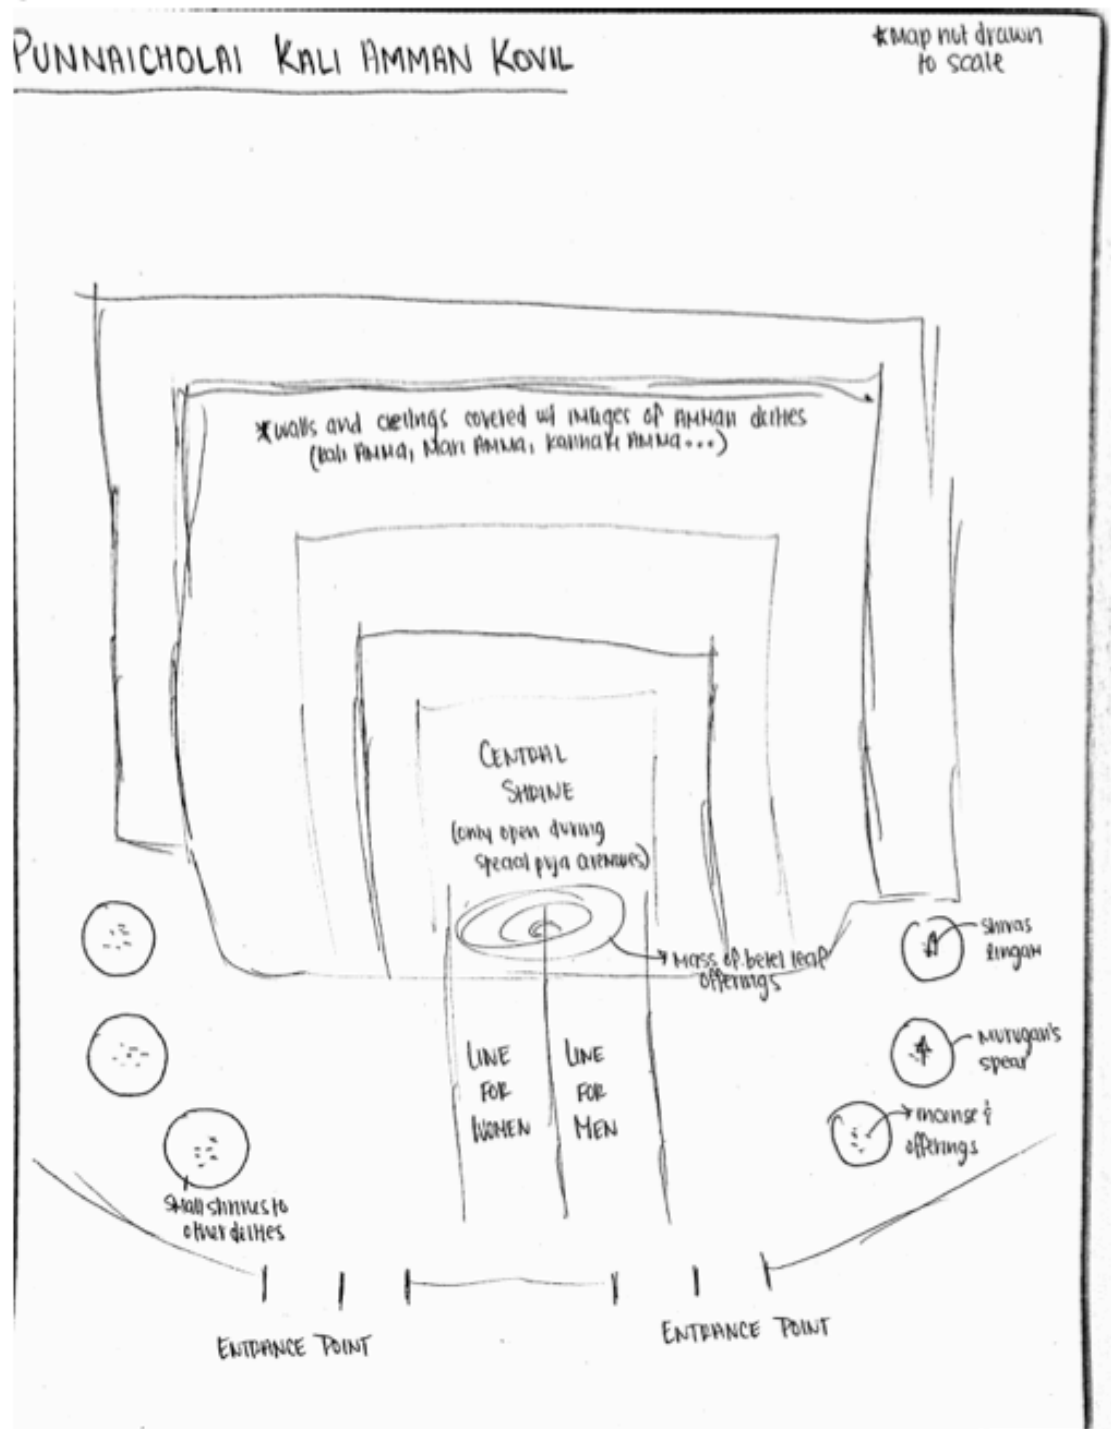 PUNNAICHOLAI KALI AMMAN KOVIL
*Map not drawn
to scale
*walls and ceilings covered w/ images of AMMAN deities
(Kali AMMA, Mari AMMA, Kannaki AMMA...)
CENTRAL
SHRINE
(only open during
special puja ceremonies)
Shivas
lingam
Mass of betel leaf
offerings
Murugan's
spear
LINE
FOR
WOMEN
LINE
FOR
MEN
incense &
offerings
Small shrines to
other deities
ENTRANCE POINT
ENTRANCE POINT